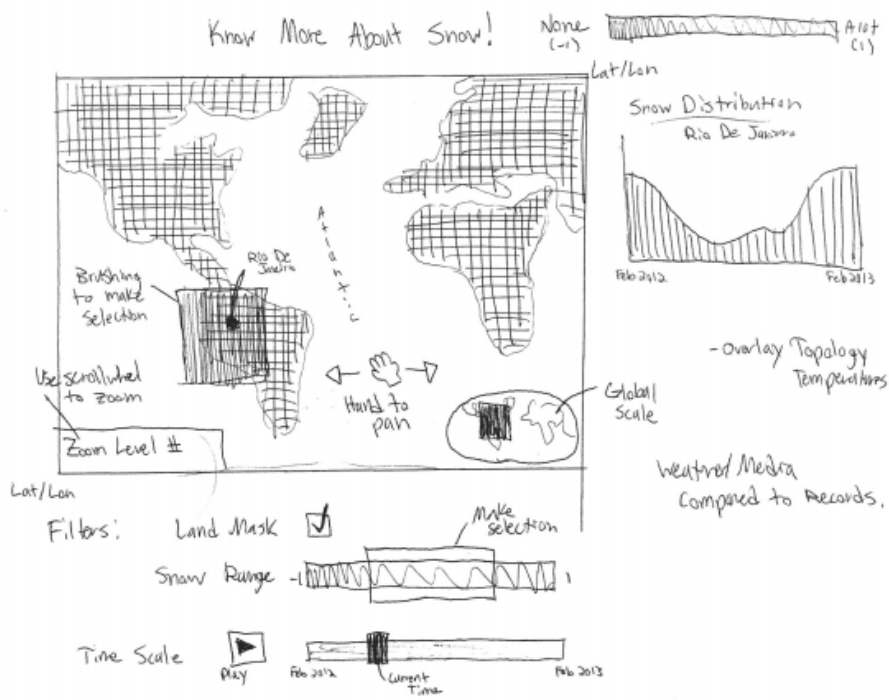 Know More About Snow!
None
(-1)
Alot
(1)
Lat/Lon
Snow Distribution
Rio De Janiero
Feb 2012
Feb 2013
Atlantic
Rio De
Janeiro
Brushing
to make
selection
Use scrollwheel
to zoom
Hand to
pan
Global
Scale
Zoom Level #
Lat/Lon
-Overlay Topology
Temperatures
Weather/Media
Compared to Records.
Filters:
Land Mask
Make
selection
Snow Range
-1
1
Time Scale
Play
Feb 2012
Current
Time
Feb 2013